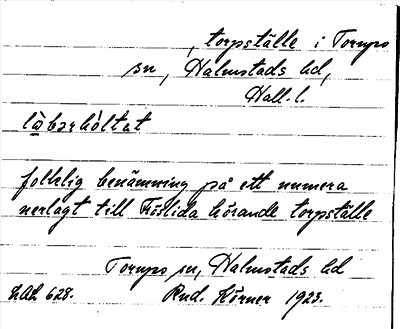 , torpställe i Torups
sn, Halmstads hd,
Hall. l.
làbərhòltət
folklig benämning på ett numera
nerlagt till Fröslida hörande torpställe
Torups sn, Halmstads hd
LAL 628. Rud. Körner 1923.